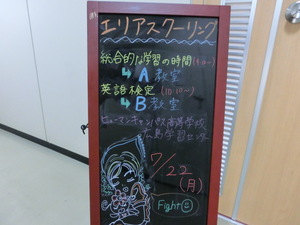 エリアスクーリング
総合的な学習の時間
↳ A 教室
英語検定 (10:10~)
↳ B 教室
ヒューマンキャンパス高等学校
広島学習センター
7/22
(月)
Fight